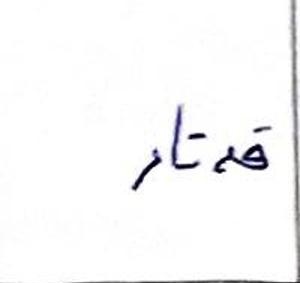 قەتار